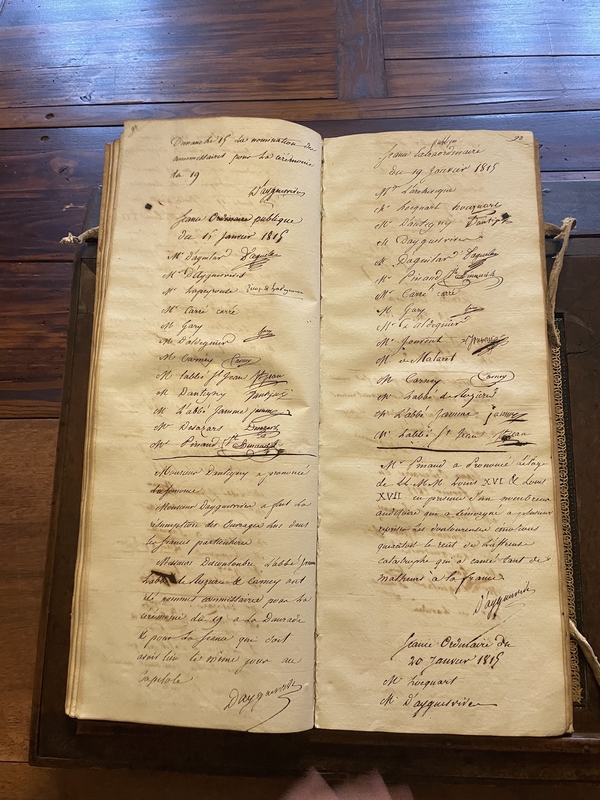 Dimanche 15 la nomination de
commissaires pour la cérémonie
du 19
Dayguesvives
Séance Ordinaire publique
du 15 janvier 1815
Mr Daguilar Daguilar
Mr Dayguesvives
Mr Lapeyrouse
Mr Carré carré
Mr Gary
Mr Daldeguier
Mr Carney Carney
Mr l'abbé St Jean St Jean
Mr Dantigny Dantigny
Mr L'abbé Jamme jamme
Mr Desazars
Mr Pinaud
Monsieur Dantigny a prononcé
la semonce
Monsieur Dayguesvives a fait la
des ouvrages lus dans
les séances particulières
Messieurs L'abbé Jamme
l'abbé & Carney ont
été nommés commissaires pour la
cérémonie du 19 a La Daurade
& pour la séance qui doit
avoir lieu le même jour au
Capitole
Dayguesvives
93
publique
Séance Extraordinaire
du 19 Janvier 1815
Mr hocquart hocquart
Mr Dantigny Dantigny
Mr Dayguesvives
Mr Daguilar Daguilar
Mr Pinaud
Mr Carré carré
Mr Gary
Mr Daldeguier
Mr Jouvent
Mr de Malaret
Mr Carney Carney
Mr l'abbé
Mr L'abbé Jamme jamme
Mr L'abbé St Jean St Jean
Mr Pinaud a Prononcé l'éloge
de LL MM Louis XVI & Louis
XVII en présence d'un nombreux
auditoire qui a témoigné a plusieurs
reprises les douloureuses émotions
qu'excitait le récit de l'affreuse
catastrophe qui a causé tant de
malheurs a la france
Dayguesvives
Séance Ordinaire du
20 Janvier 1815
Mr hocquart
Mr Dayguesvives